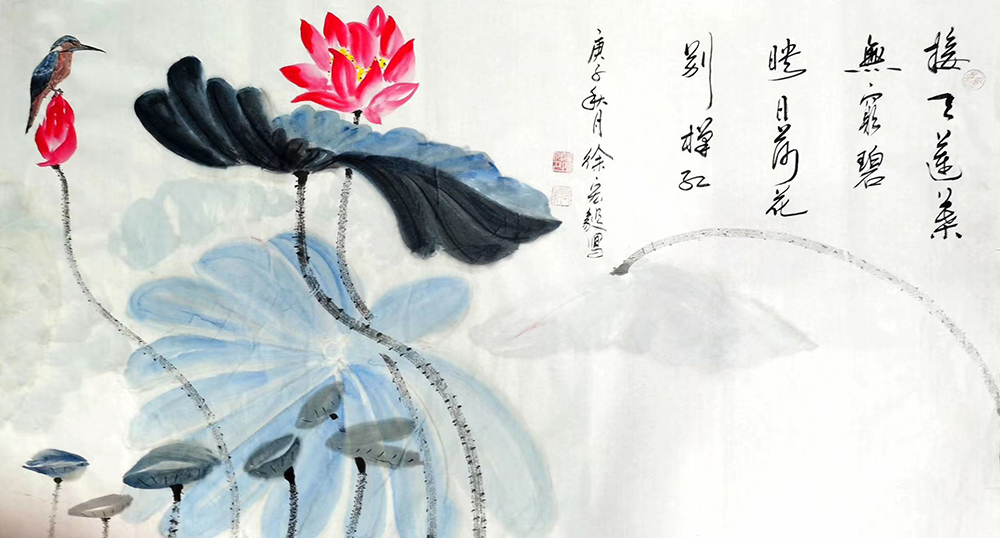 接天蓮葉
無窮碧
映日荷花
別樣红
庚子秋月徐宏寫